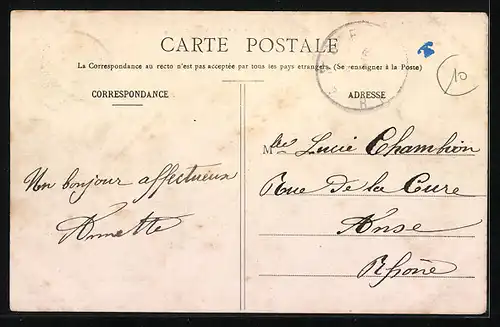 CARTE POSTALE
La Correspondance au recto n'est pas acceptée par tous les pays étrangers. (Se renseigner à la Poste)
CORRESPONDANCE
ADRESSE
10
Un bonjour affectueux
Annette
Mlle Lucie Chambion
Rue De la Cure
Anse
Rhône